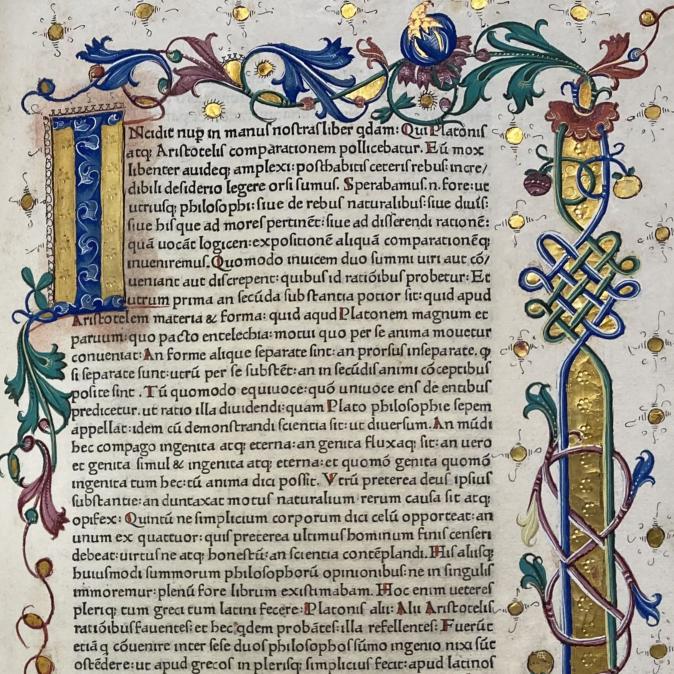 INcidit nup in manus nostras liber qdam: Qui Platonis
atq; Aristotelis comparationem pollicebatur. Eū mox
libenter auideq; amplexi: posthabitis ceteris rebus: incre/
dibili desiderio legere orsi sumus. Sperabamus .n. fore: ut
utriusq; philosophi: siue de rebus naturalibus: siue diuīs:
siue his que ad mores pertinēt: siue ad disserendi rationē:
quā uocāt logicen: expositionē aliquā comparationēq;
inueniremus. Quomodo inuicem duo summi uiri aut cō/
ueniant aut discrepent: quibus id ratiōibus probetur: Et
utrum prima an secūda substantia potior sit: quid apud
Aristotelem materia & forma: quid aqud Platonem magnum et
paruum: quo pacto entelechia: motui quo per se anima mouetur
conueniat: An forme alique separate sint: an prorsus inseparate. q
si separate sunt: utrū per se substēt: an in secūdis animi cōceptibus
posite sint. Tū quomodo equiuoce: quō uniuoce ens de entibus
predicetur. ut ratio illa diuidendi: quam Plato philosophie sepem
appellat: idem cū demonstrandi scientia sit: ut diuersum. An mūdi
hec compago ingenita atq; eterna: an genita fluxaq; sit: an uero
et genita simul & ingenita atq; eterna: et quomō genita quomō
ingenita tum hec: tū anima dici possit. Vtrū preterea deus ipsius
substantie: an duntaxat motus naturalium rerum causa sit atq;
opifex: Quintū ne simplicium corporum dici celū oporteat: an
unum ex quattuor: quis preterea ultimus hominum finis censeri
debeat: uirtus ne atq; honestū: an scientia contēplandi. His aliisq;
huiusmodi summorum philosophorū opinionibus: ne in singulis
immoremur: plenū fore librum existimabam. Hoc enim ueteres
pleriq; tum greci tum latini fecere: Platonis alii: Alii Aristotelis
ratiōibus fauentes: et hec qdem probātes: illa refellentes: Fuerūt
etiā q cōuenire inter sese duos philosophos sūmo ingenio nixi sūt
ostēdere: ut apud grecos in plerisq; simplicius fecit: apud latinos